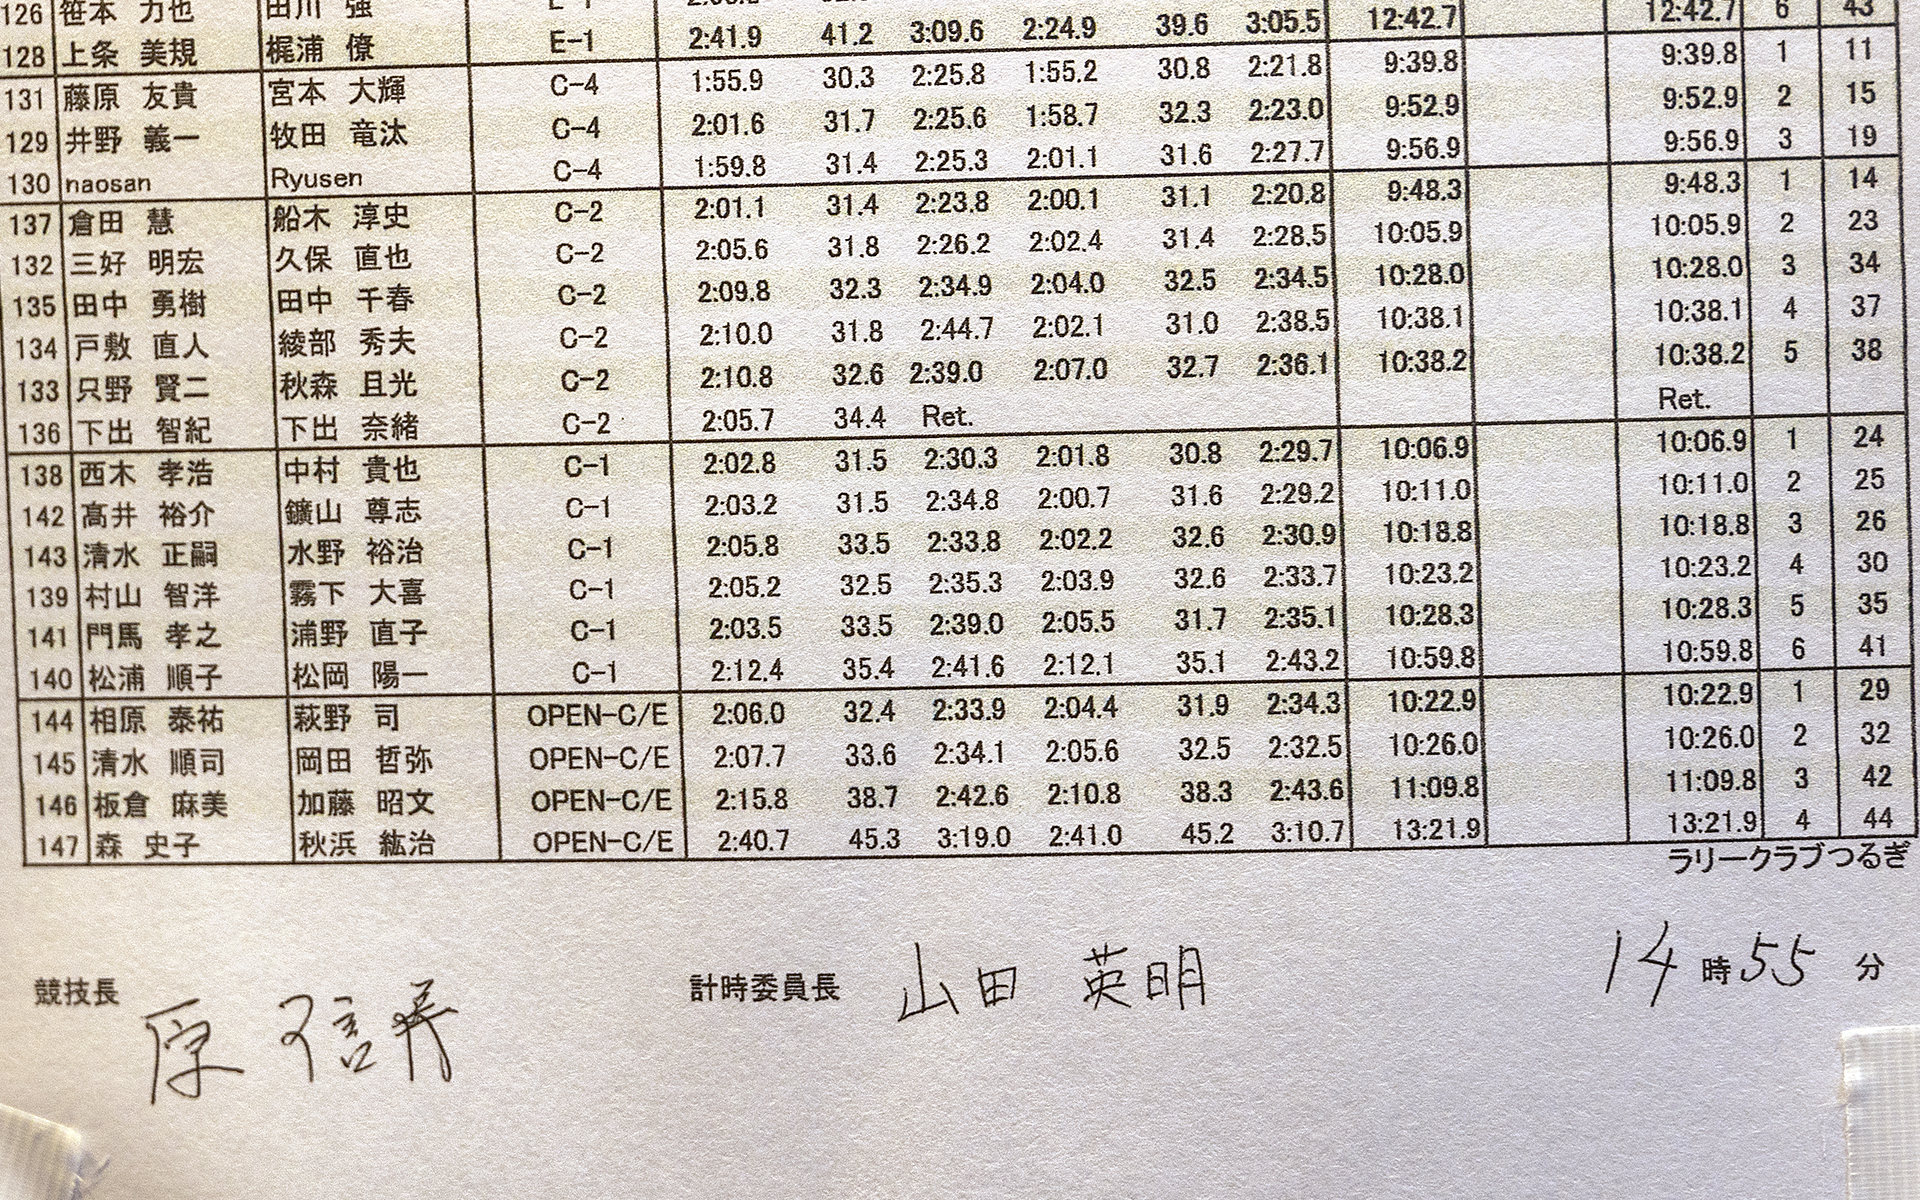 126 笹本 力也 田川 強 E-1
128 上条 美規 梶浦 僚 E-1 2:41.9 41.2 3:09.6 2:24.9 39.6 3:05.5 12:42.7 12:42.7 6 43
131 藤原 友貴 宮本 大輝 C-4 1:55.9 30.3 2:25.8 1:55.2 30.8 2:21.8 9:39.8 9:39.8 1 11
129 井野 義一 牧田 竜汰 C-4 2:01.6 31.7 2:25.6 1:58.7 32.3 2:23.0 9:52.9 9:52.9 2 15
130 naosan Ryusen C-4 1:59.8 31.4 2:25.3 2:01.1 31.6 2:27.7 9:56.9 9:56.9 3 19
137 倉田 慧 船木 淳史 C-2 2:01.1 31.4 2:23.8 2:00.1 31.1 2:20.8 9:48.3 9:48.3 1 14
132 三好 明宏 久保 直也 C-2 2:05.6 31.8 2:26.2 2:02.4 31.4 2:28.5 10:05.9 10:05.9 2 23
135 田中 勇樹 田中 千春 C-2 2:09.8 32.3 2:34.9 2:04.0 32.5 2:34.5 10:28.0 10:28.0 3 34
134 戸敷 直人 綾部 秀夫 C-2 2:10.0 31.8 2:44.7 2:02.1 31.0 2:38.5 10:38.1 10:38.1 4 37
133 只野 賢二 秋森 且光 C-2 2:10.8 32.6 2:39.0 2:07.0 32.7 2:36.1 10:38.2 10:38.2 5 38
136 下出 智紀 下出 奈緒 C-2 2:05.7 34.4 Ret. Ret.
138 西木 孝浩 中村 貴也 C-1 2:02.8 31.5 2:30.3 2:01.8 30.8 2:29.7 10:06.9 10:06.9 1 24
142 髙井 裕介 鑛山 尊志 C-1 2:03.2 31.5 2:34.8 2:00.7 31.6 2:29.2 10:11.0 10:11.0 2 25
143 清水 正嗣 水野 裕治 C-1 2:05.8 33.5 2:33.8 2:02.2 32.6 2:30.9 10:18.8 10:18.8 3 26
139 村山 智洋 霧下 大喜 C-1 2:05.2 32.5 2:35.3 2:03.9 32.6 2:33.7 10:23.2 10:23.2 4 30
141 門馬 孝之 浦野 直子 C-1 2:03.5 33.5 2:39.0 2:05.5 31.7 2:35.1 10:28.3 10:28.3 5 35
140 松浦 順子 松岡 陽一 C-1 2:12.4 35.4 2:41.6 2:12.1 35.1 2:43.2 10:59.8 10:59.8 6 41
144 相原 泰祐 萩野 司 OPEN-C/E 2:06.0 32.4 2:33.9 2:04.4 31.9 2:34.3 10:22.9 10:22.9 1 29
145 清水 順司 岡田 哲弥 OPEN-C/E 2:07.7 33.6 2:34.1 2:05.6 32.5 2:32.5 10:26.0 10:26.0 2 32
146 板倉 麻美 加藤 昭文 OPEN-C/E 2:15.8 38.7 2:42.6 2:10.8 38.3 2:43.6 11:09.8 11:09.8 3 42
147 森 史子 秋浜 紘治 OPEN-C/E 2:40.7 45.3 3:19.0 2:41.0 45.2 3:10.7 13:21.9 13:21.9 4 44
ラリークラブつるぎ
競技長 原 計時委員長 山田 英明 14 時 55 分